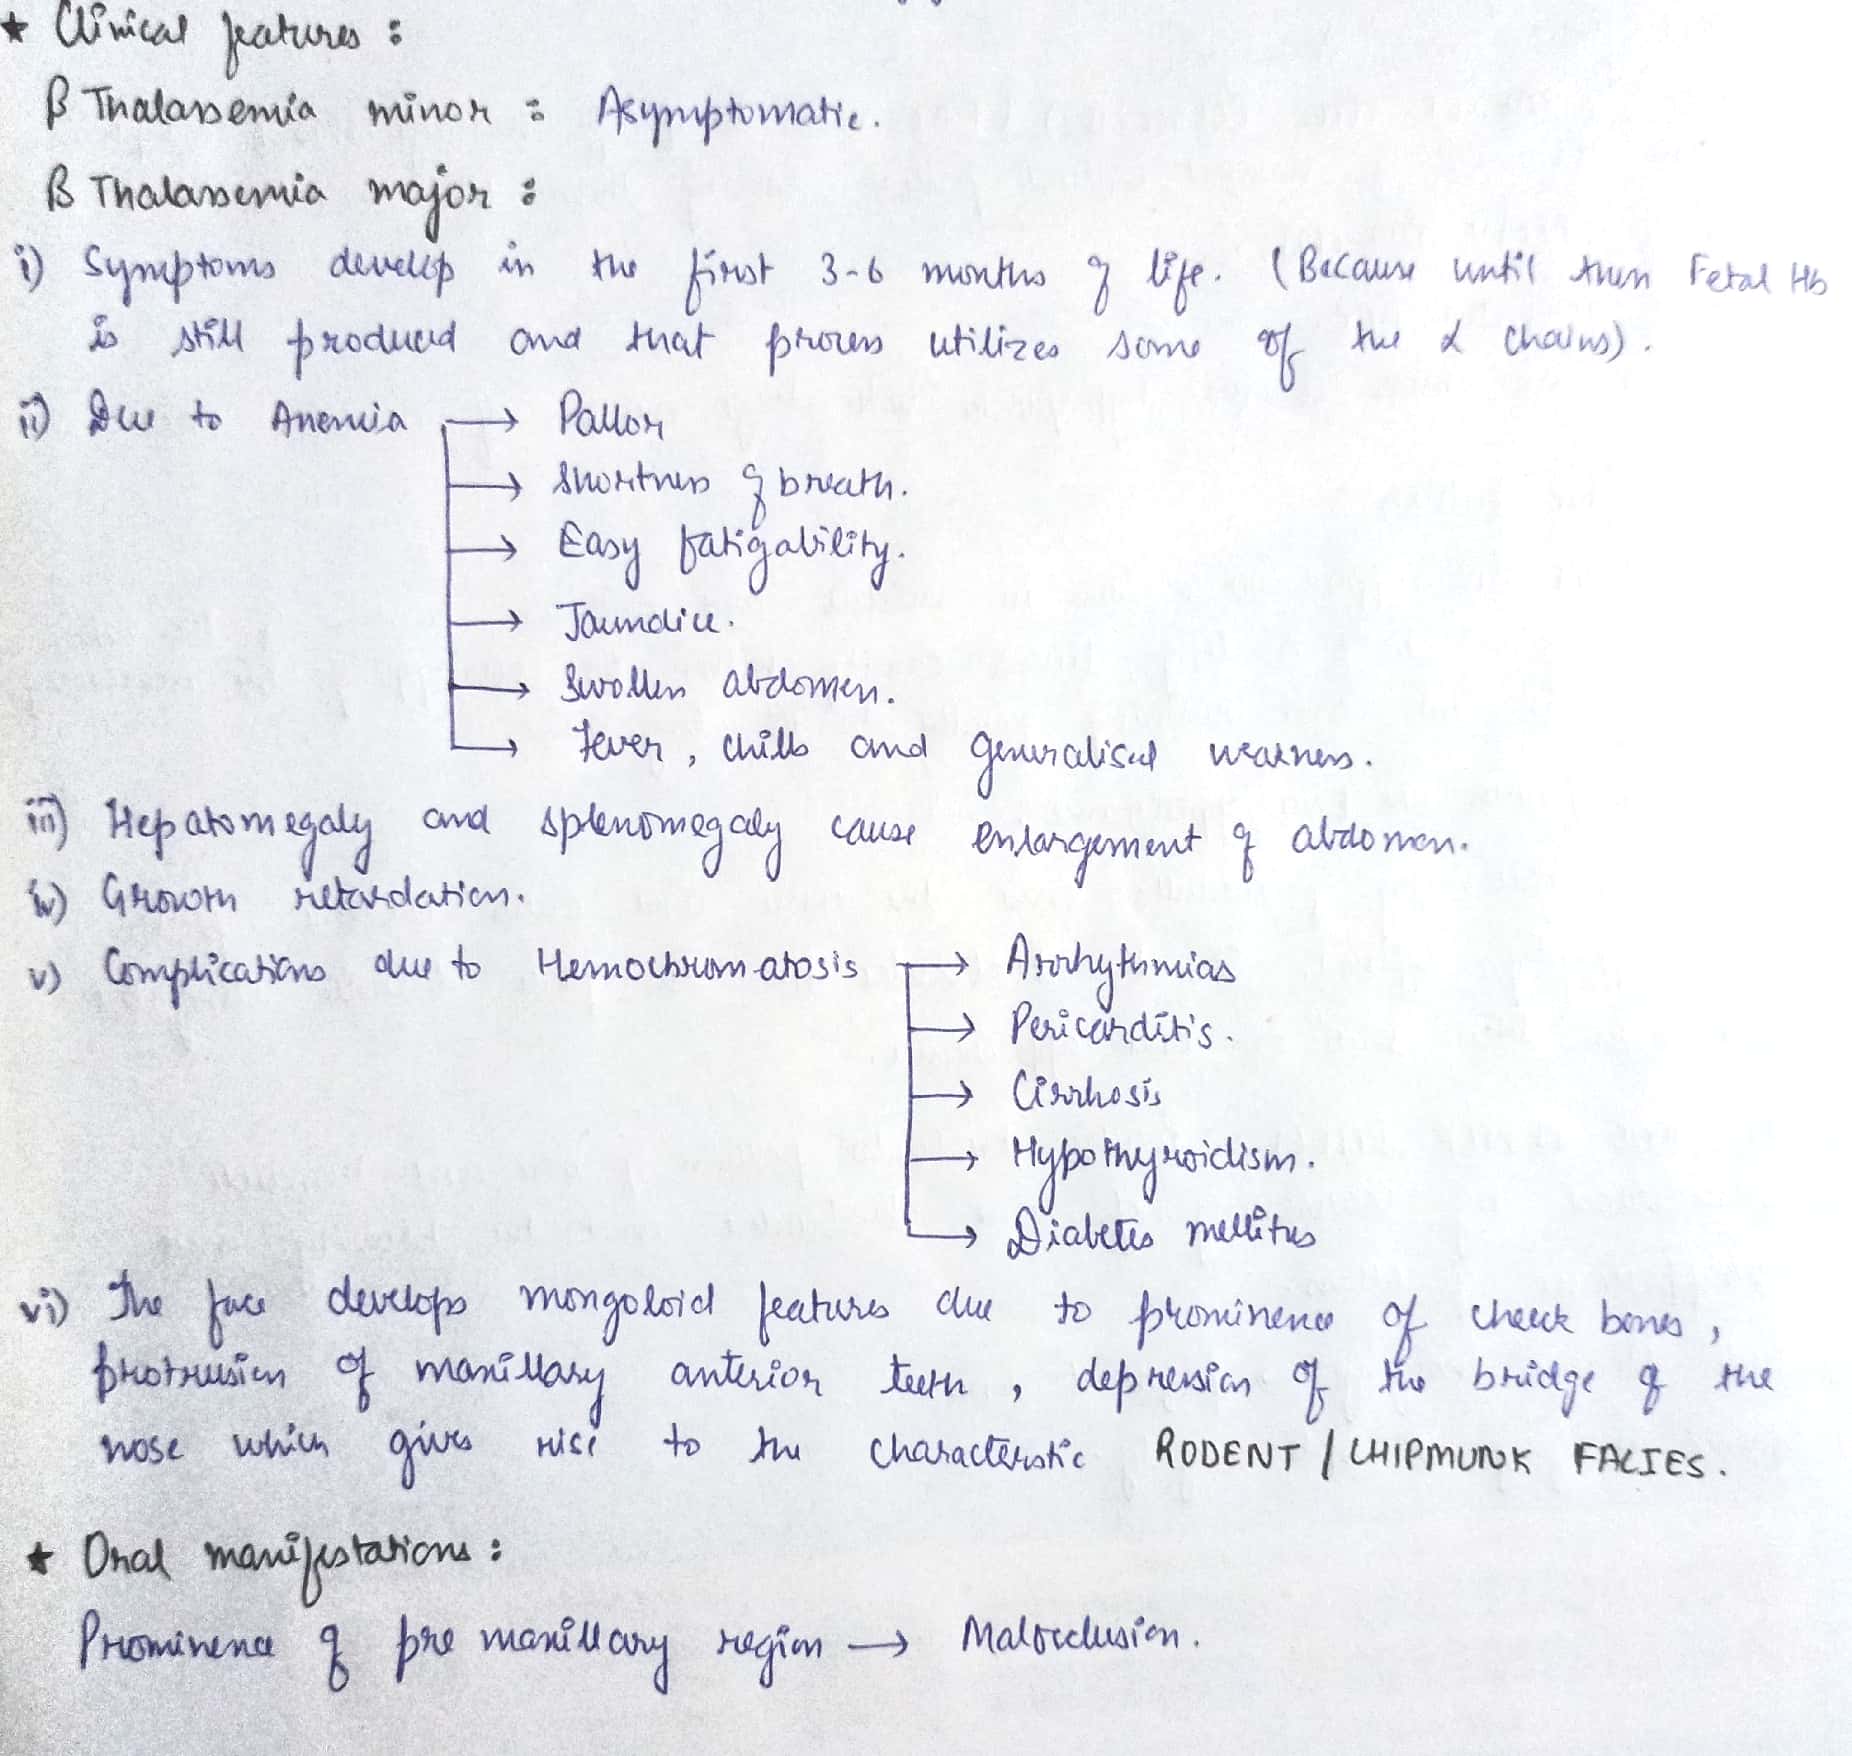 ★ Clinical features :
β Thalassemia minor : Asymptomatic.
β Thalassemia major :
i) Symptoms develop in the first 3-6 months of life. (Because until then Fetal Hb
is still produced and that process utilizes some of the α chains).
ii) Due to Anemia → Pallor
→ Shortness of breath.
→ Easy fatigability.
→ Jaundice.
→ Swollen abdomen.
→ Fever, chills and generalised weakness.
iii) Hepatomegaly and splenomegaly cause enlargement of abdomen.
iv) Growth retardation.
v) Complications due to Hemochromatosis → Arrhythmias
→ Pericarditis.
→ Cirrhosis
→ Hypothyroidism.
→ Diabetes mellitus
vi) The face develops mongoloid features due to prominence of cheek bones,
protrusion of maxillary anterior teeth, depression of the bridge of the
nose which gives rise to the characteristic RODENT / CHIPMUNK FACIES.
★ Oral manifestations :
Prominence of pre maxillary region → Malocclusion.